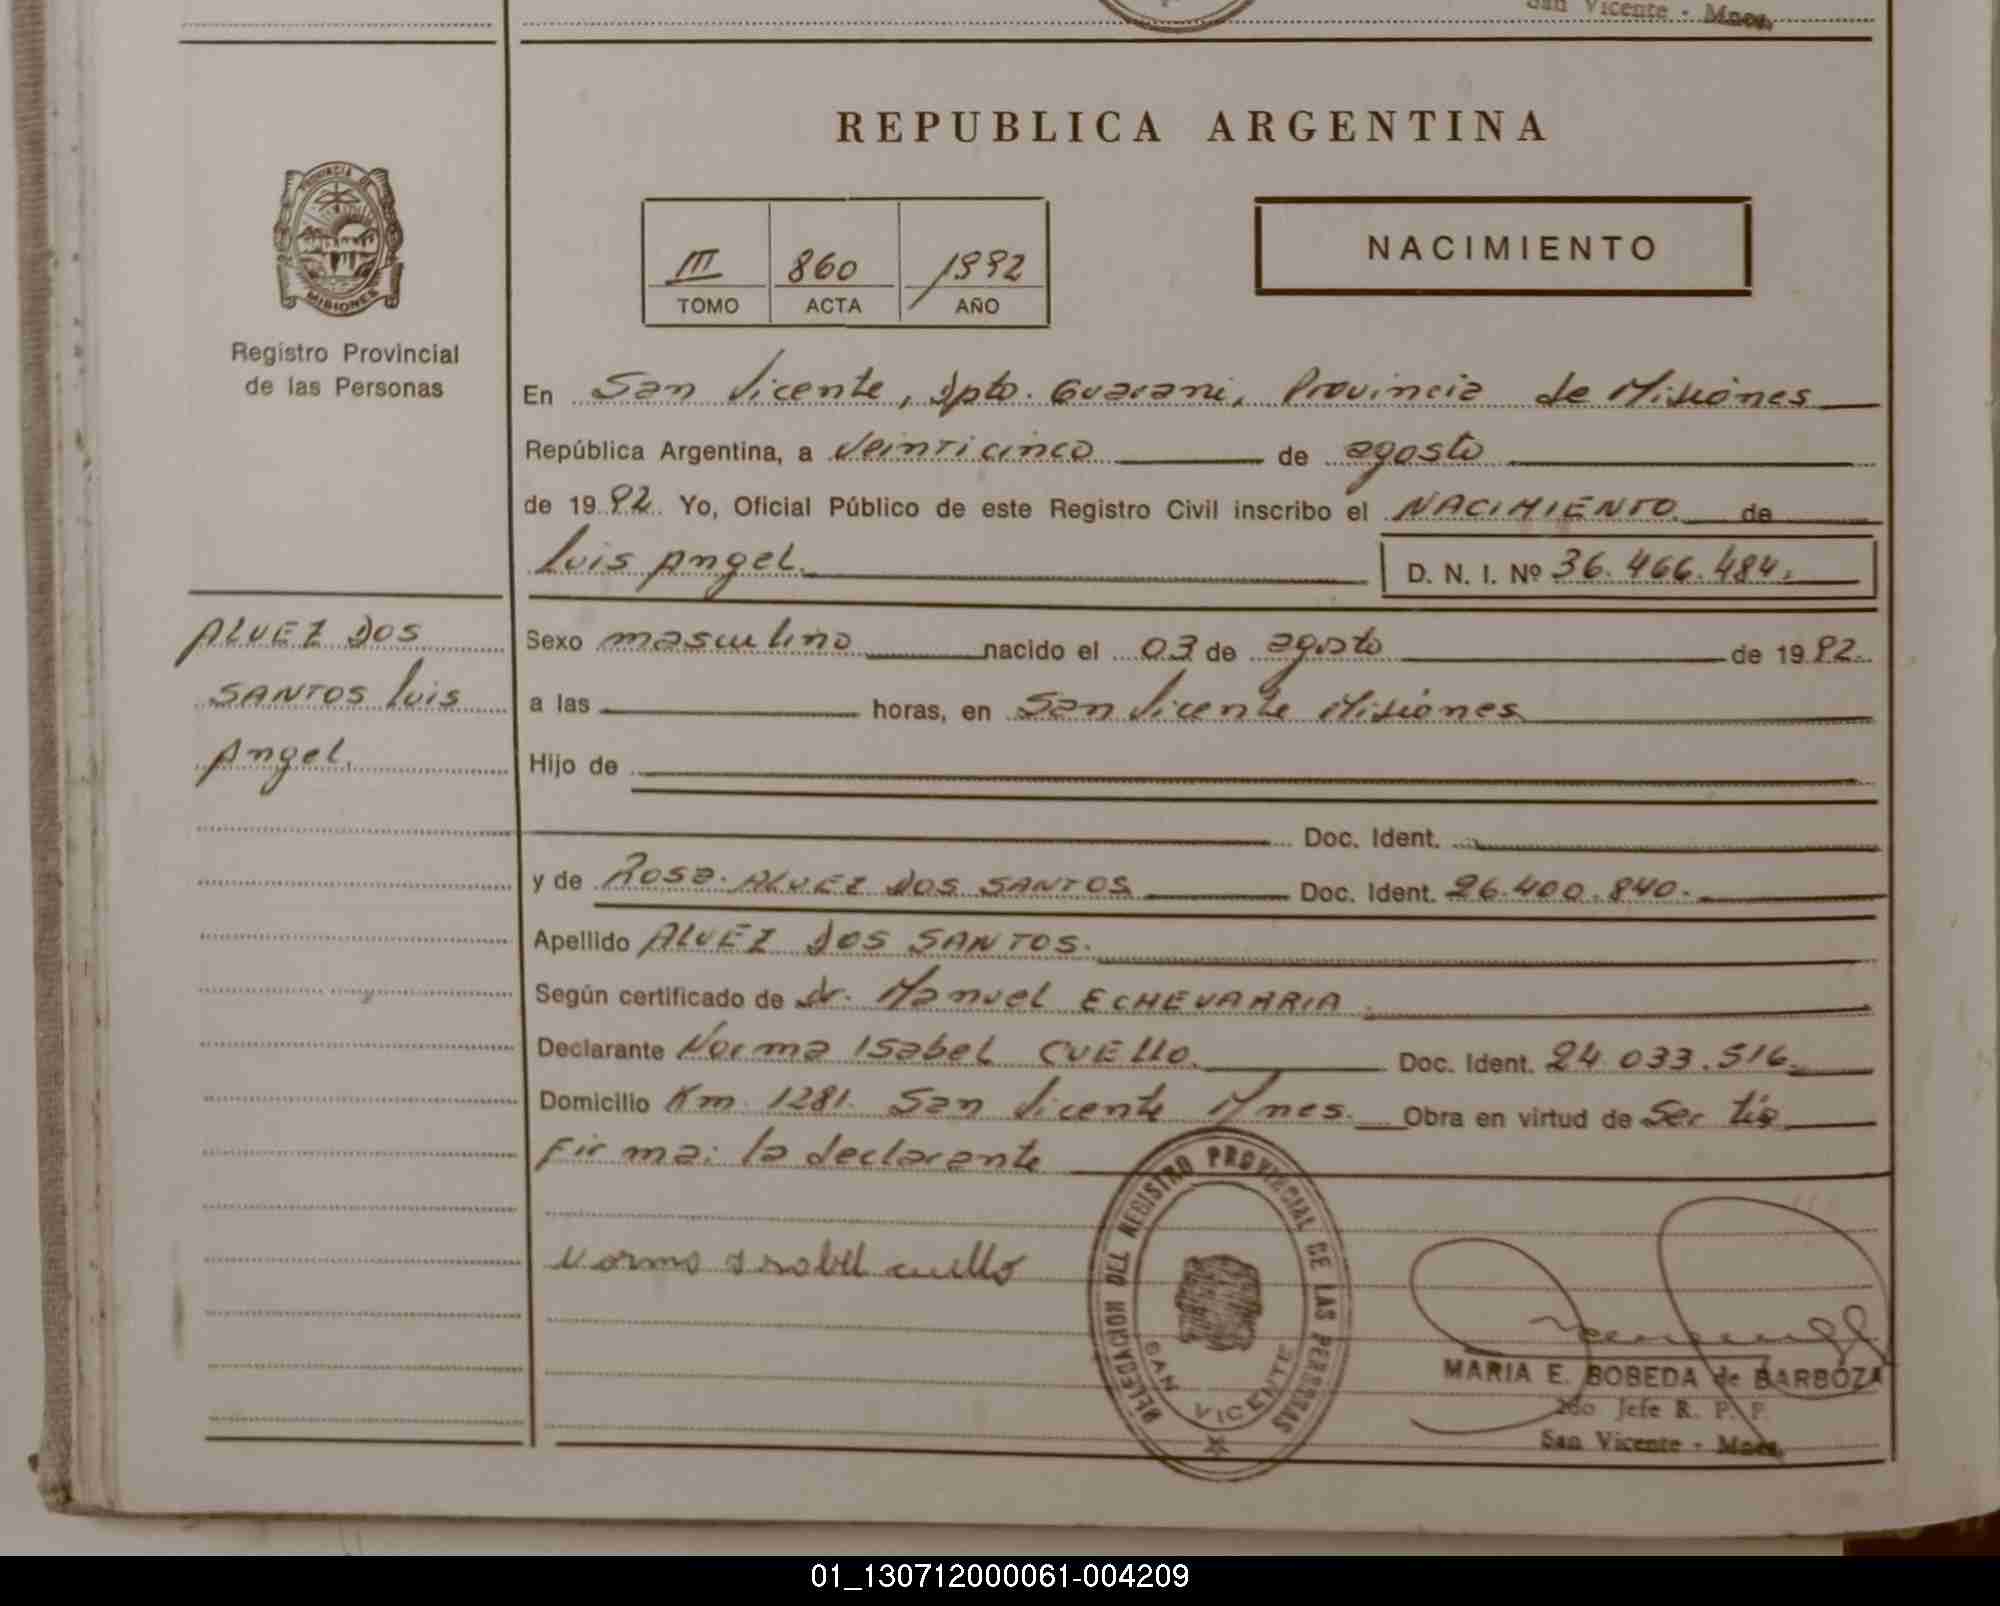 San Vicente - Mnes.
REPUBLICA ARGENTINA
PROVINCIA DE
MISIONES
Registro Provincial
de las Personas
III 860 1992
TOMO ACTA AÑO
NACIMIENTO
En San Vicente, Dpto. Guarani, Provincia de Misiones
República Argentina, a Veinticinco de agosto
de 1992 Yo, Oficial Público de este Registro Civil inscribo el NACIMIENTO de
Luis Angel. D. N. I. Nº 36.466.484.
ALVEZ DOS
SANTOS Luis
Angel.
Sexo masculino nacido el 03 de agosto de 1992.
a las horas, en San Vicente Misiones
Hijo de
Doc. Ident.
y de Rosa ALVEZ DOS SANTOS Doc. Ident. 26.400.840.
Apellido ALVEZ DOS SANTOS.
Según certificado de dr. Manuel ECHEVARRIA
Declarante Norma Isabel CUELLO. Doc. Ident. 24.033.516.
Domicilio Km. 1281. San Vicente Mnes. Obra en virtud de Ser tía
Firma: la declarante
Norma Isabel cuello
DELEGACION DEL REGISTRO PROVINCIAL DE LAS PERSONAS
SAN VICENTE
MARIA E. BOBEDA de BARBOZA
2do Jefe R. P. P.
San Vicente - Mnes.
01_130712000061-004209